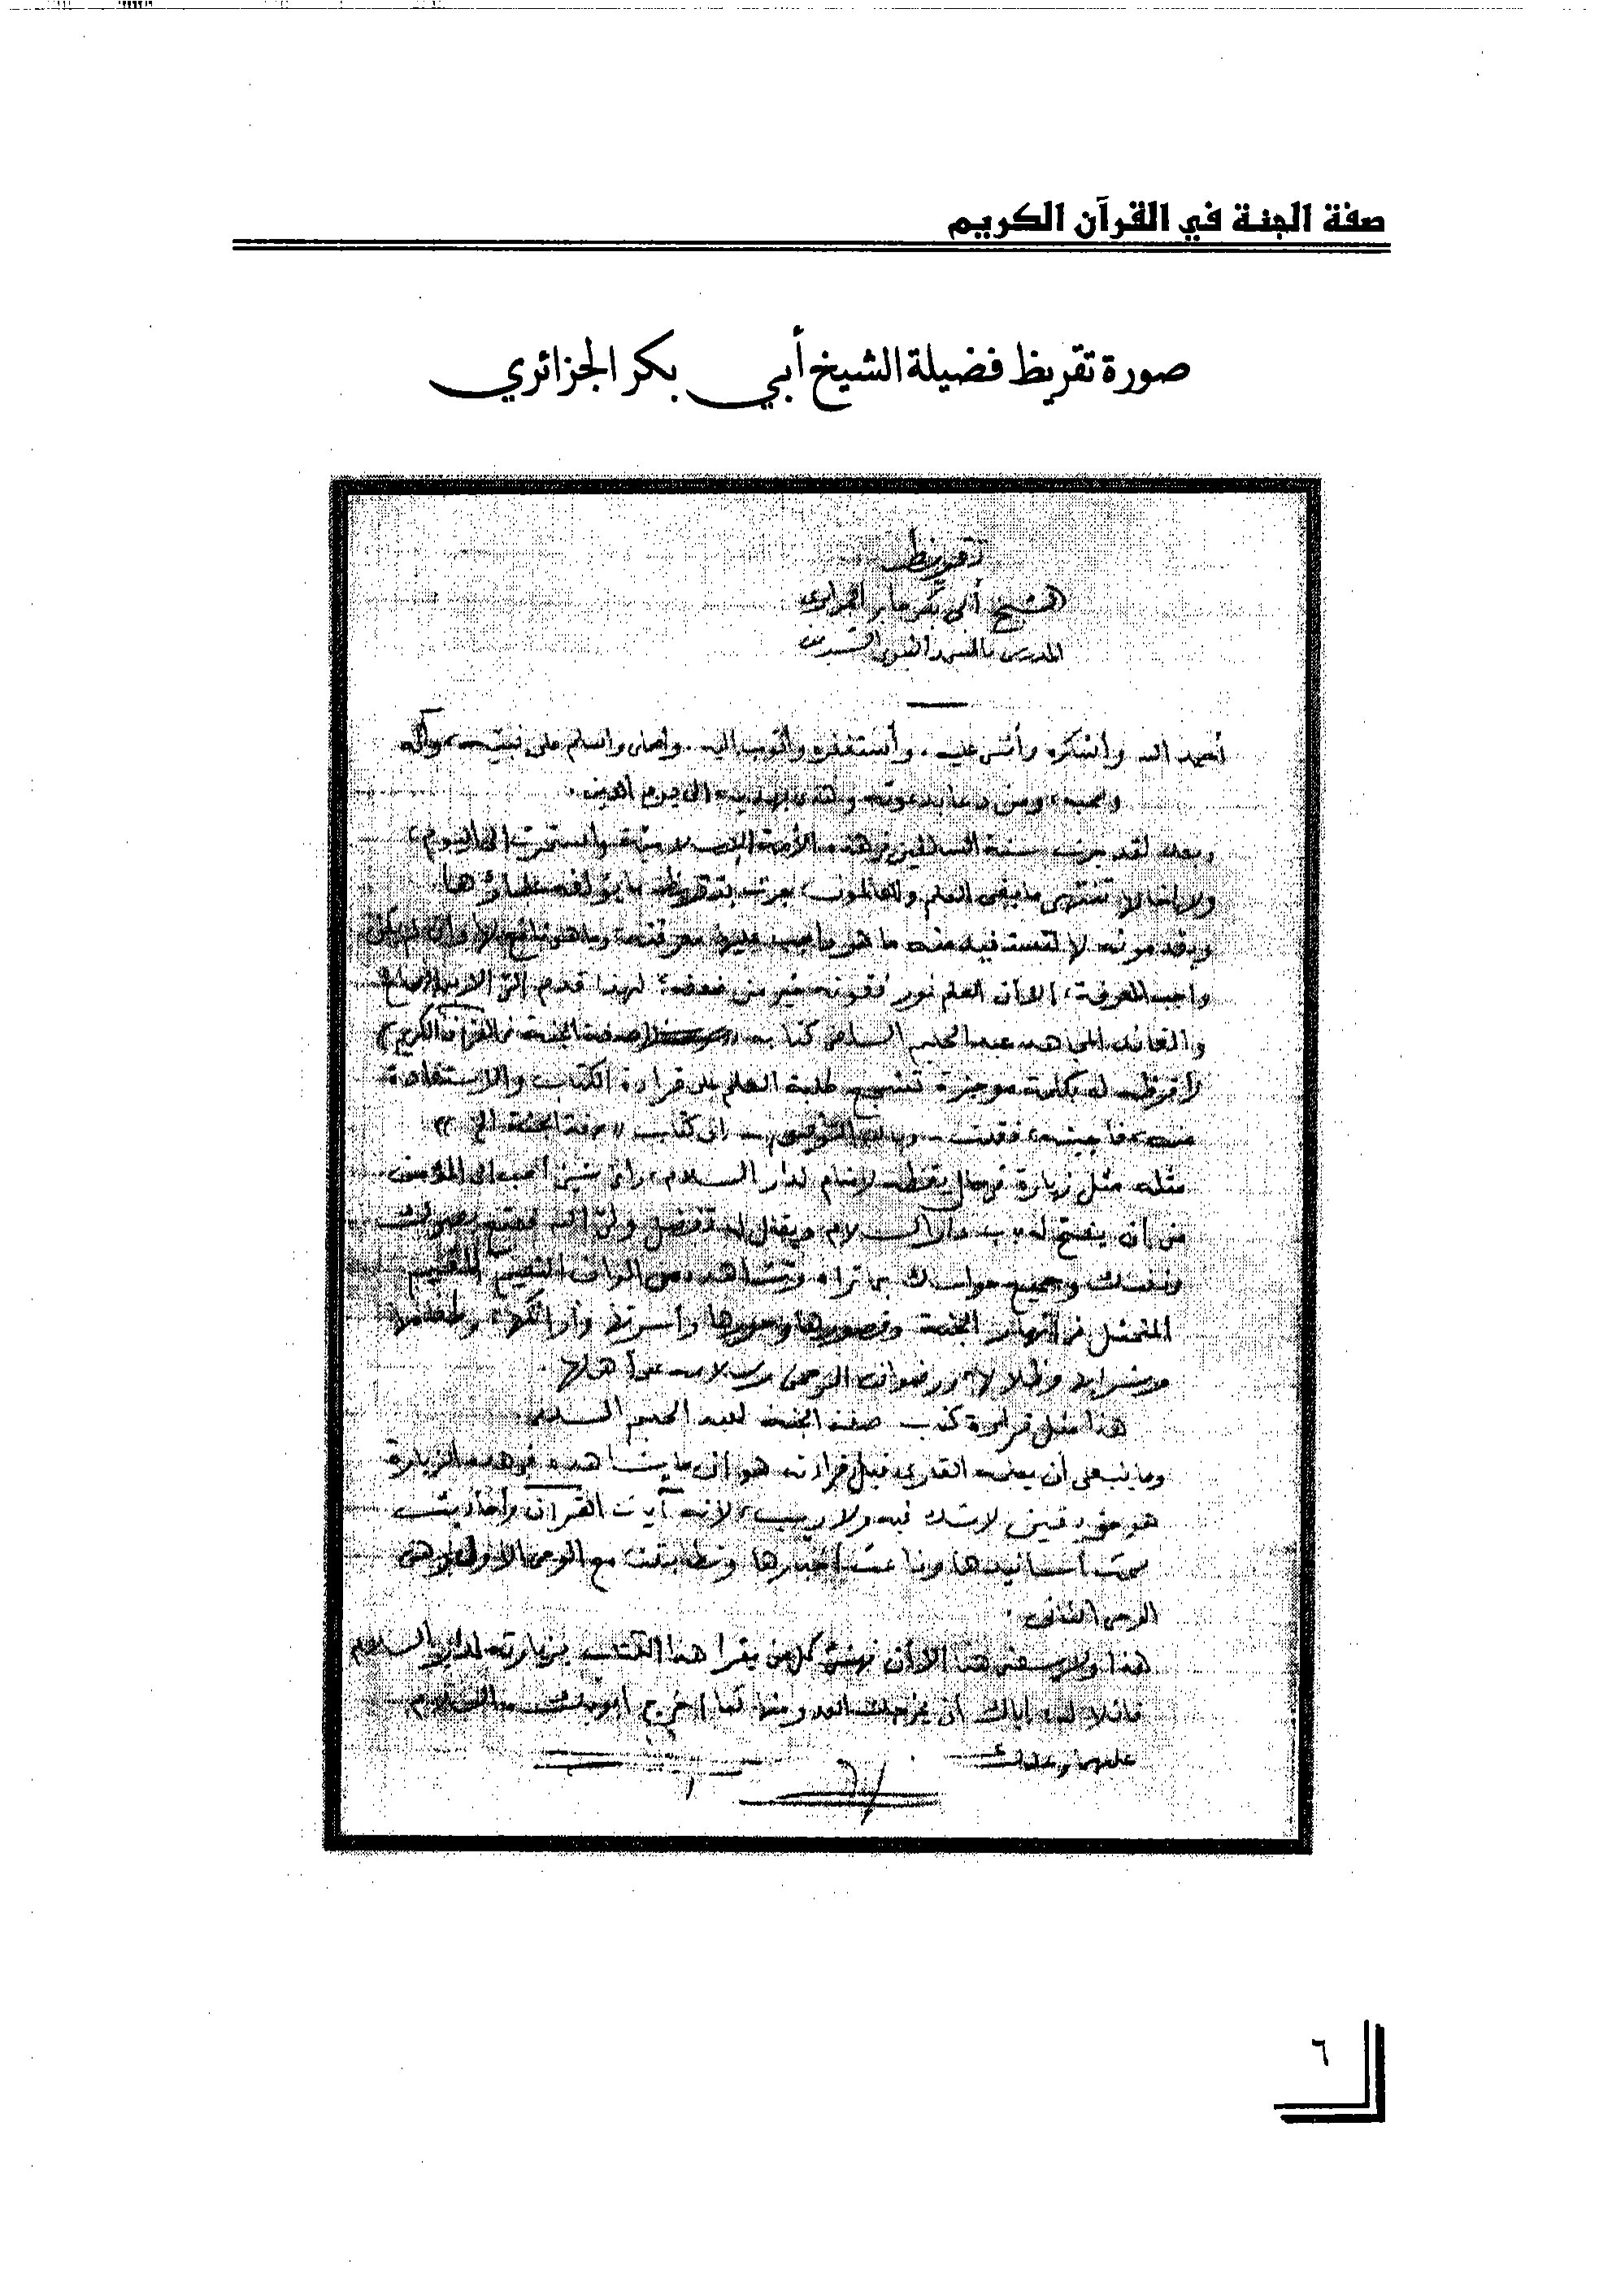 صفة الجنة في القرآن الكريم
صورة تقريظ فضيلة الشيخ أبي بكر الجزائري
تقريظ
الشيخ أبي بكر جابر الجزائري
المدرس بالمسجد النبوي الشريف
أحمد الله وأشكره وأثني عليه، وأستغفره وأتوب إليه. وأصلي وأسلم على نبيه، وآله
وصحبه، ومن دعا بدعوته واهتدى بهديه إلى يوم الدين.
وبعد لقد جرت سنة السالفين في هذه الأمة الإسلامية واستمرت إلى اليوم،
تنتهي ما بقي العلم والعالمون، جرت بتقريظ ما يؤلفه علماؤها
ويقدمونه لا لتستفيد منه ما هو واجب عليها معرفته، وما هو نافع لها وإن لم يكن
واجب المعرفة، إلا أن العلم نور فقوته خير من ضعفه؛ لهذا قدم إلي الابن الصالح
والقائد المجاهد عبد الحليم السلفي كتابه (صفة الجنة في القرآن الكريم)
لأقرظه له بكلمة موجزة تشجع طلبة العلم على قراءة الكتاب والاستفادة
منه، فأجبته، فقلت - وبالله التوفيق - إن كتاب "صفة الجنة الخ"
مثله مثل زيارة في حال يقظة لا منام لدار السلام، وأي شيء أحب إلى المؤمن
من أن يفتح له باب دار السلام ويقال له تفضل ولي الله فمتع
نفسك وجميع حواسك بما تراه وتشاهده من ألوان النعيم المقيم
المتمثل في أنهار الجنة وقصورها وحورها وأسرتها وأرائكها، وطعامها
وشرابها وظلالها ورضوان الرحمن وسلامه على أهلها.
هذا مثل قراءة كتاب صفة الجنة لعبد الحليم السلفي.
وما ينبغي أن يعلمه القارئ قبل قراءته هو أن ما يشاهده في هذه الزيارة
هو حق يقين لا شك فيه ولا ريب، لأنه آيات القرآن وأحاديث
صحت أسانيدها أخبارها وتطابقت مع الوحي الأول وهي
الوحي الثاني.
هذا ولا يسعني هنا إلا أن نهنئ كل من يقرأ هذا الكتاب بزيارته لدار السلام
قائلا له، إياك أن يخرجك العدو منها كما أخرج أبويك، والسلام
عليهما وعليك
٦